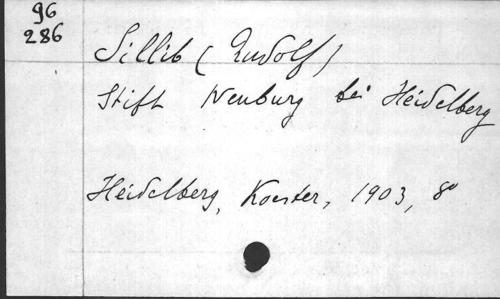 96
286
Sillib (Rudolf)
Stift Neuburg bei Heidelberg
Heidelberg, Koester, 1903, 8°